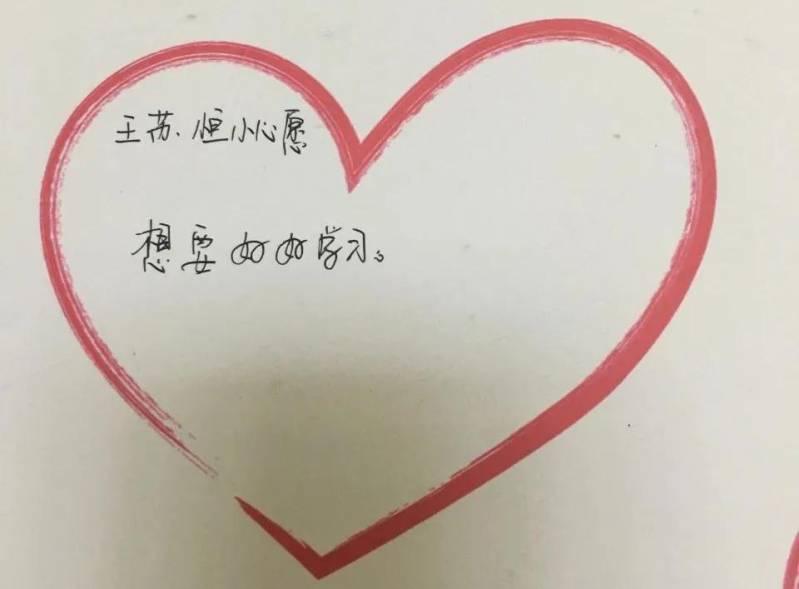 王苏恒小心愿
想要好好学习。